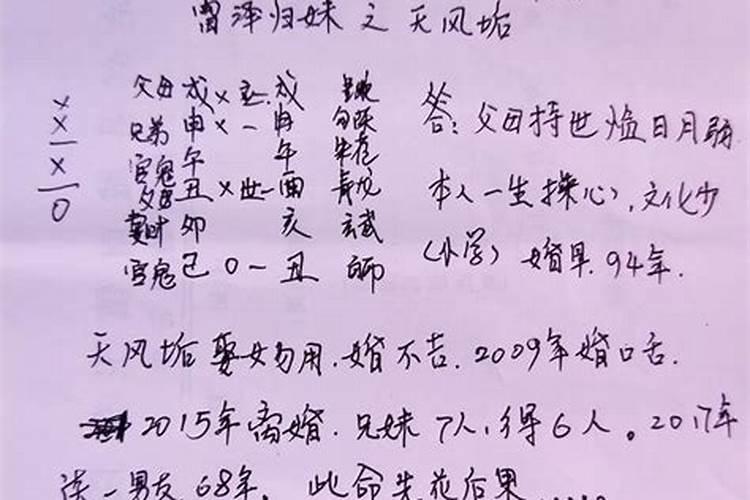 雷泽归妹之天风垢
父母戌×应戌
兄弟申×一申
官鬼午 午
父母丑×世一酉
妻财卯 亥 玄武
官鬼巳0一丑
×
×
一
×
一
0
答:父母持世临日月弱
本人一生操心,文化少
(小学)婚早.94年.
天风垢娶女勿用.婚不吉.2009年婚口舌.
2015年离婚.兄妹7人,得6人。2017年
一男友68年,此命先花后果.....